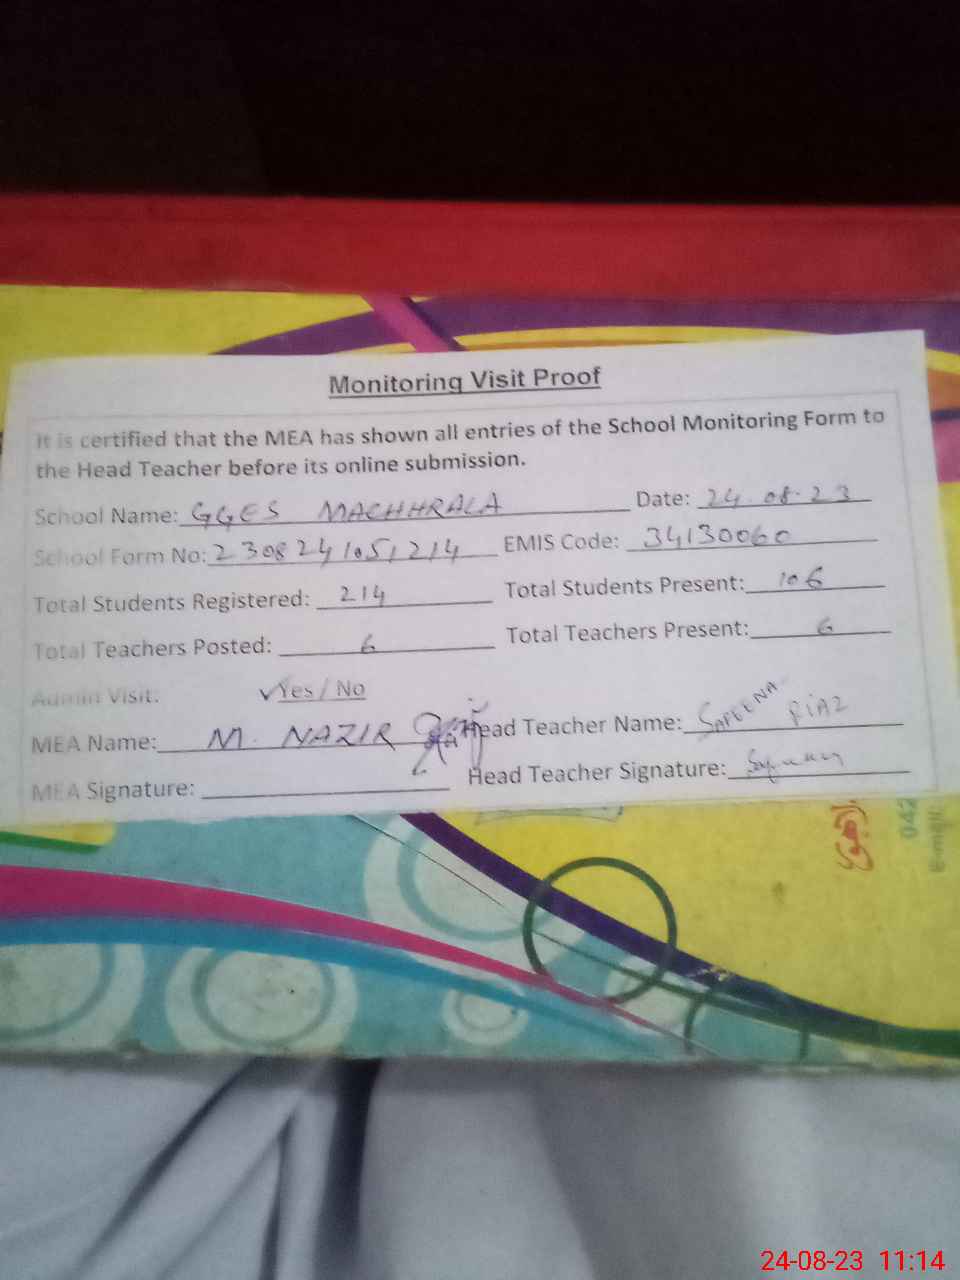 Monitoring Visit Proof
It is certified that the MEA has shown all entries of the School Monitoring Form to
the Head Teacher before its online submission.
School Name: GGES MACHHRALA Date: 24.08.23
School Form No: 2308241051214 EMIS Code: 34130060
Total Students Registered: 214 Total Students Present: 106
Total Teachers Posted: 6 Total Teachers Present: 6
Admin Visit: ✓Yes / No
MEA Name: M. NAZIR Head Teacher Name: SAFEENA RIAZ
MEA Signature: Head Teacher Signature:
042
E-mail:
24-08-23 11:14